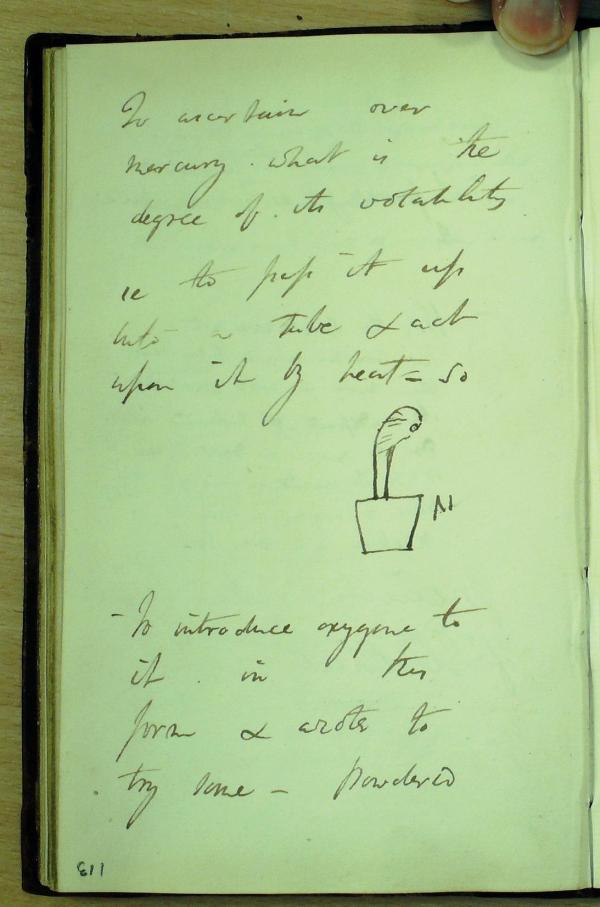 To ascertain over
mercury. what is the
degree of its volatility
ie to pass it up
into a tube & act
upon it by heat = so
M
- To introduce oxygene to
it. in this
form & azote to
try some - powdered
113